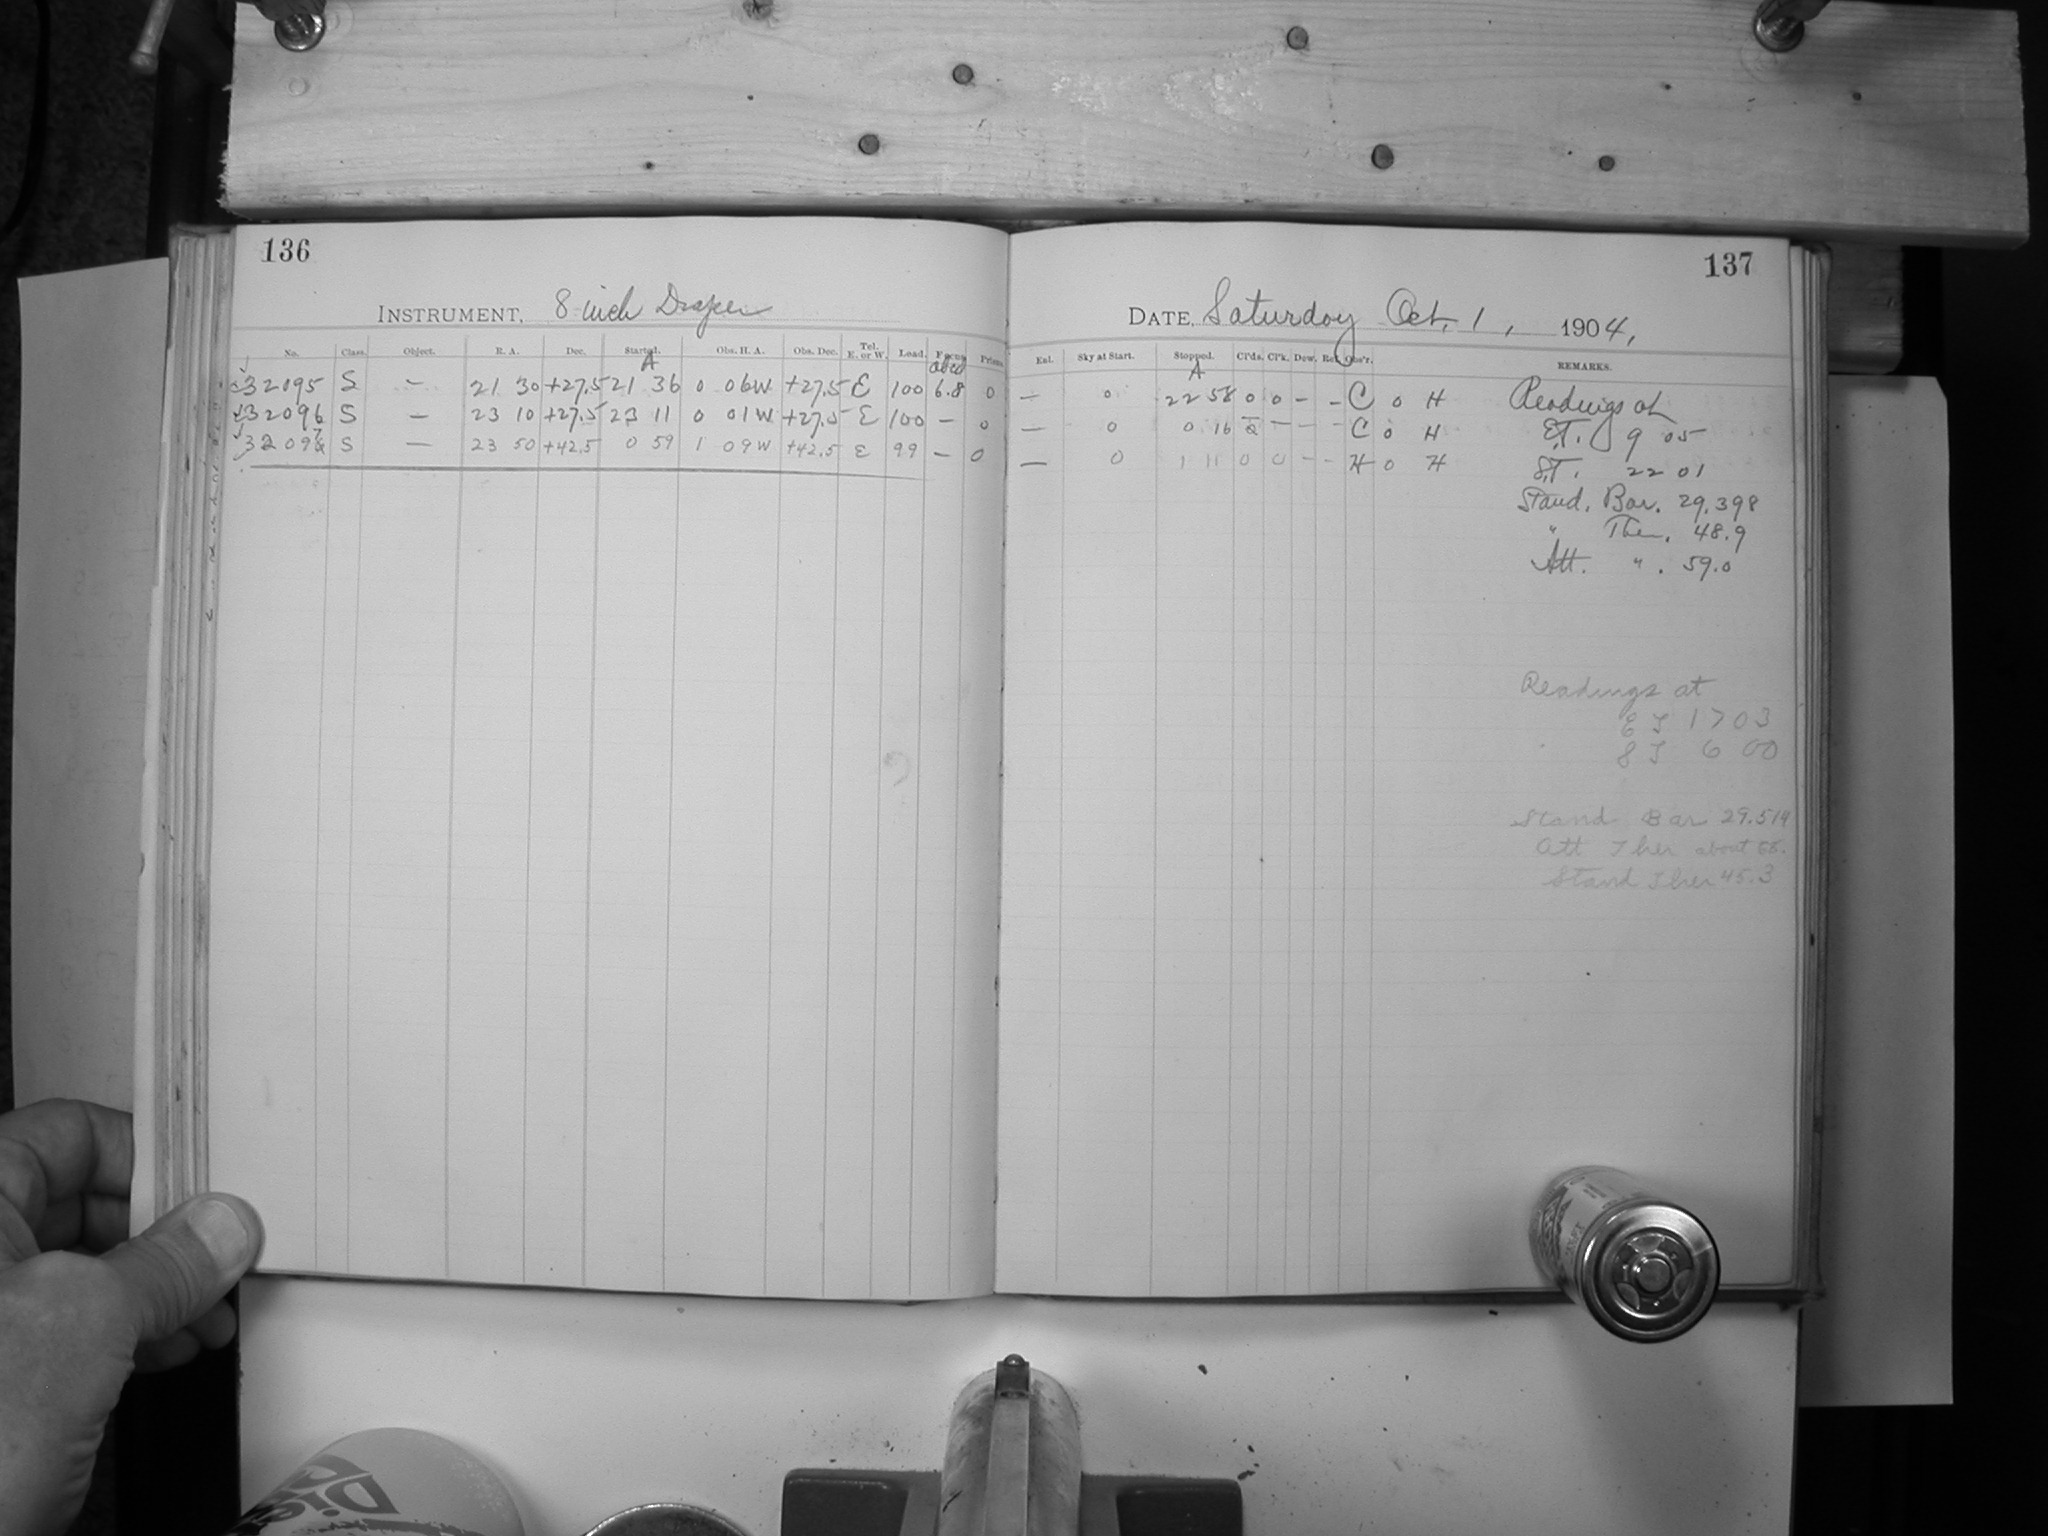 136
INSTRUMENT, 8 inch Draper
No. Class. Object. R. A. Dec. Started. Obs. H. A. Obs. Dec. Tel. E. or W. Load. Focus Prism
A abcd
32095 S — 21 30 +27.5 21 36 0 06W +27.5 E 100 6.8 0
32096 S — 23 10 +27.5 23 11 0 01W +27.5 E 100 — 0
32097 S — 23 50 +42.5 0 59 1 09W +42.5 E 99 — 0
137
DATE, Saturday Oct. 1, 1904,
Ent. Sky at Start. Stopped. Cl'ds. Cl'k. Dew. Rel. Obs'r. REMARKS.
A
— 0 22 58 0 0 — — C 0 H
— 0 0 16 — — — C 0 H
— 0 1 11 0 0 — — H 0 H
Readings at
E.T. 9 05
S.T. 22 01
Stand. Bar. 29.398
" Ther. 48.9
Att. " . 59.0
Readings at
E T 17 03
S T 6 00
Stand Bar 29.514
Att Ther about
Stand Ther 45.3